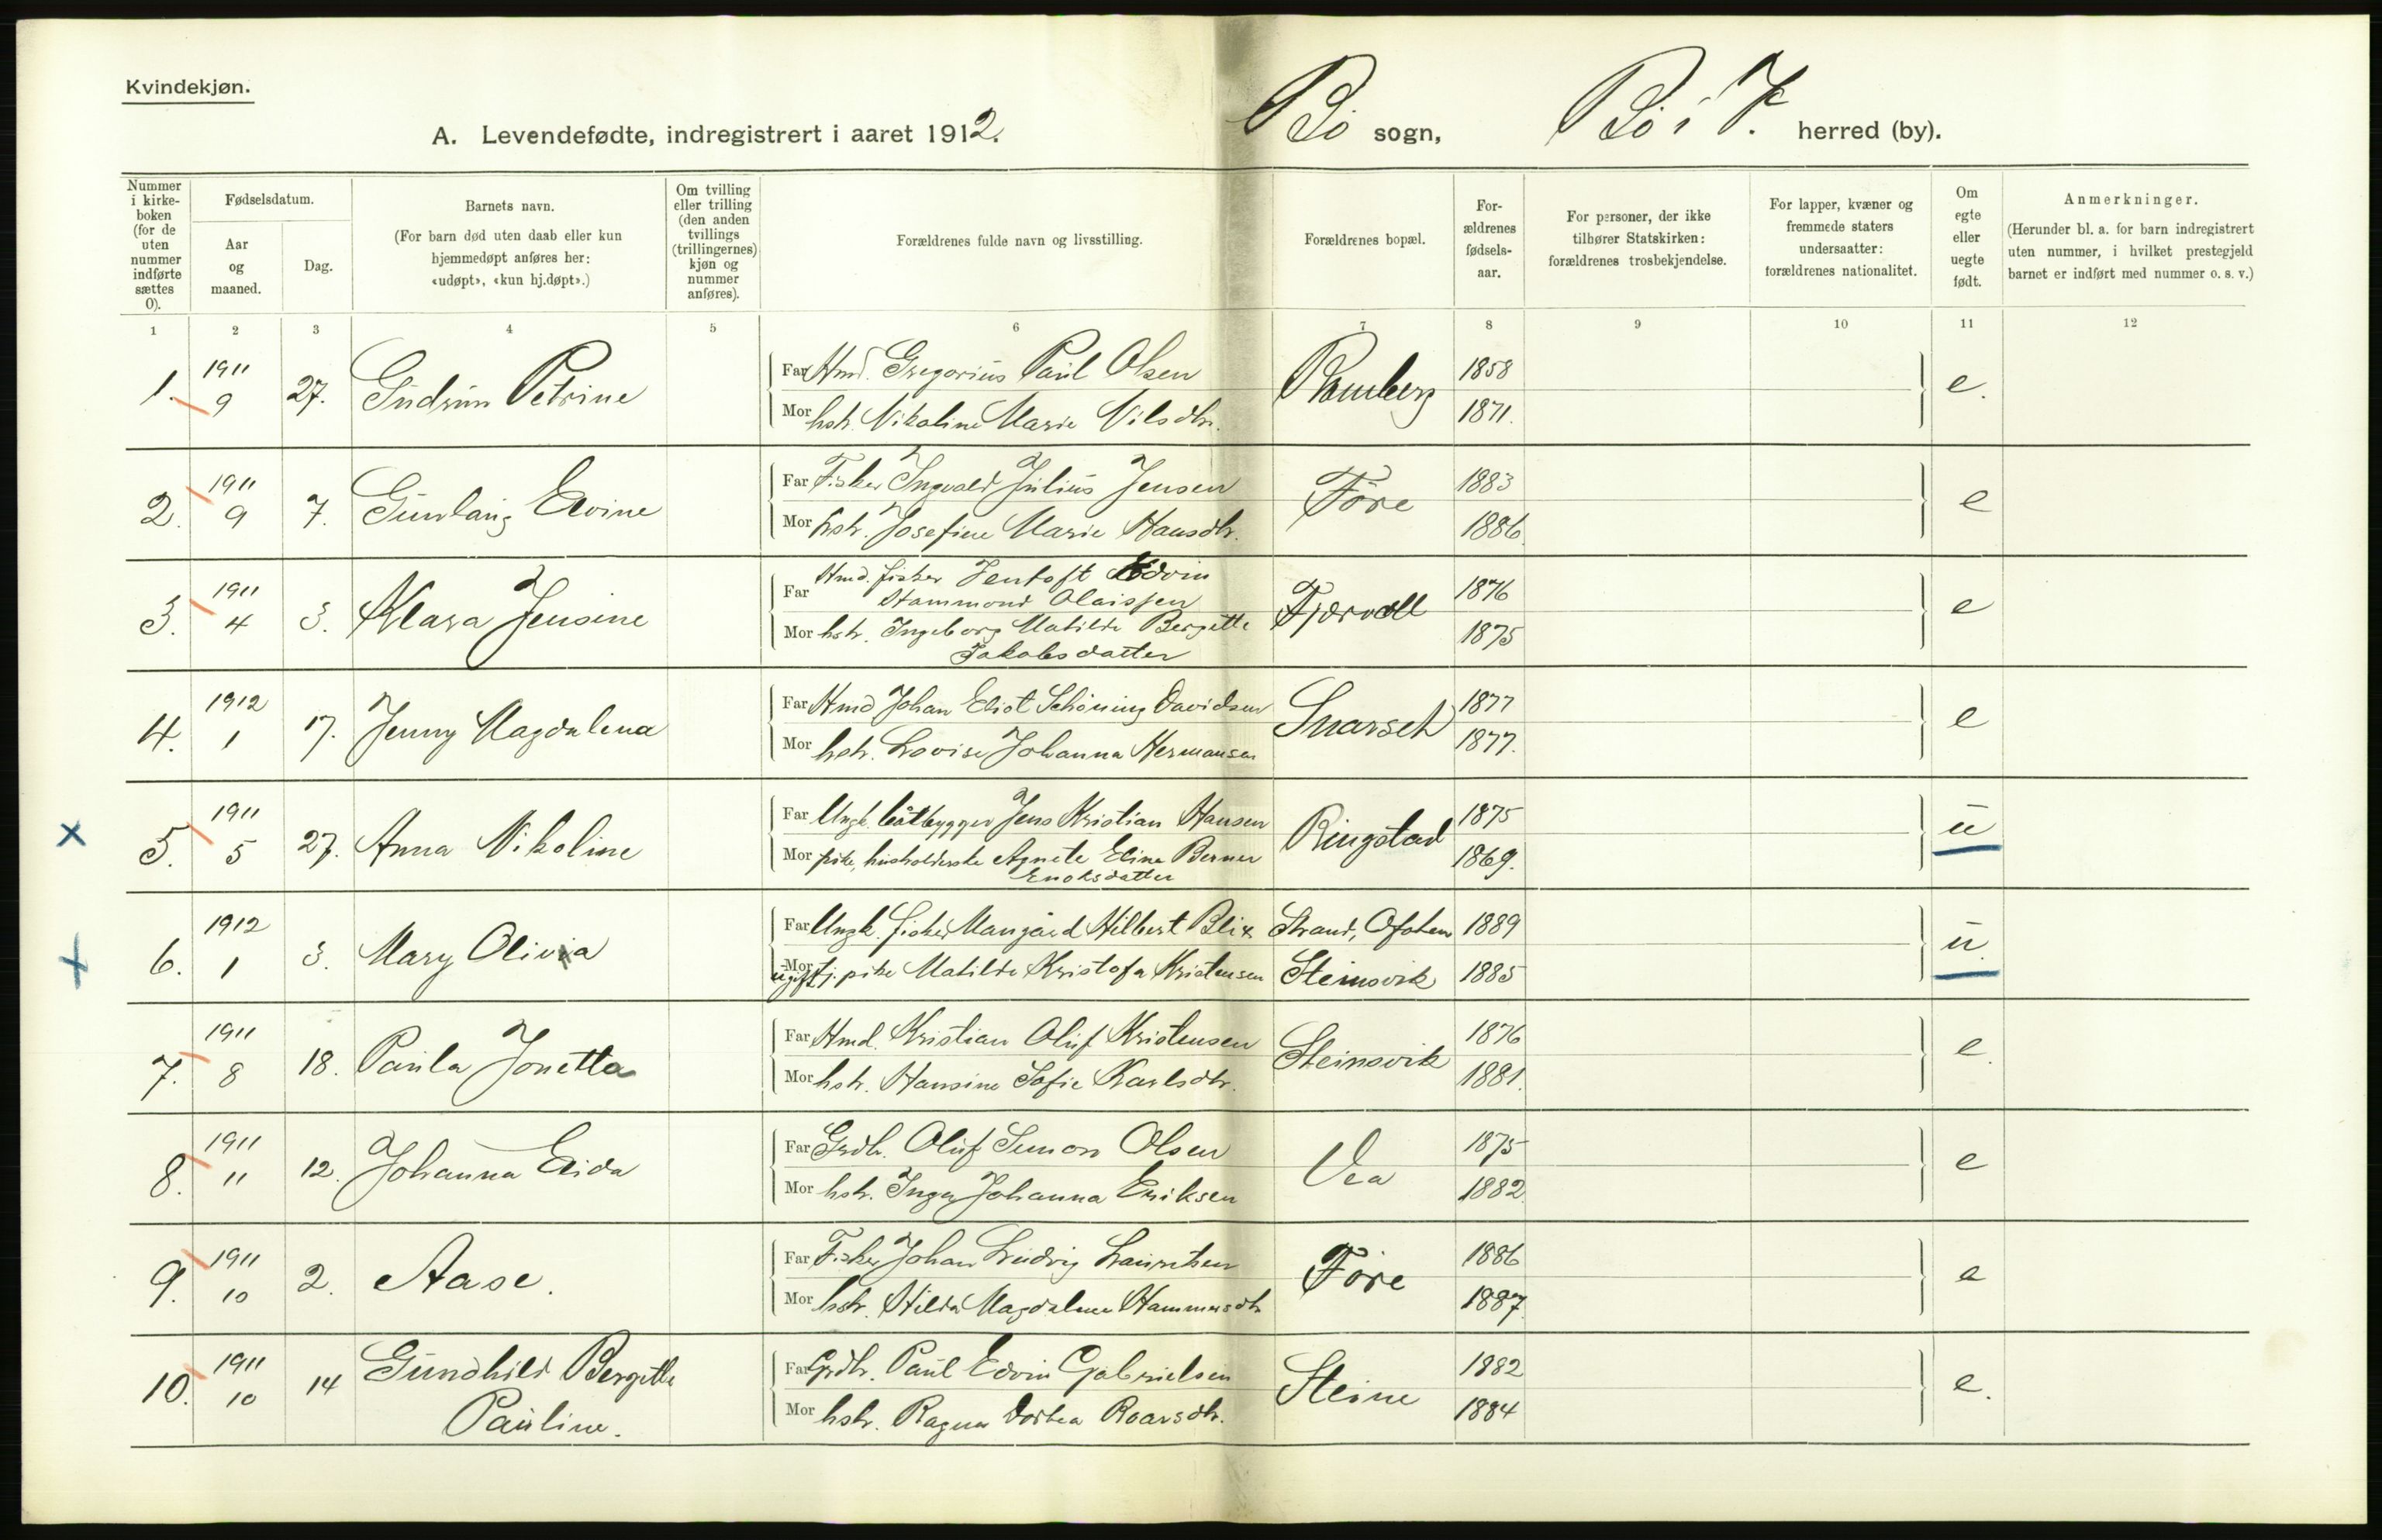 Kvindekjøn.
A. Levendefødte, indregistrert i aaret 1912. Bö sogn, Bö i V. herred (by).
Nummer i kirkeboken (for de uten nummer indførte sættes 0).
Fødselsdatum.
Aar og maaned.
Dag.
Barnets navn.
(For barn død uten daab eller kun hjemmedøpt anføres her: «udøpt», «kun hj.døpt».)
Om tvilling eller trilling (den anden tvillings (trillingernes) kjøn og nummer anføres).
Forældrenes fulde navn og livsstilling.
Forældrenes bopæl.
Forældrenes fødselsaar.
For personer, der ikke tilhører Statskirken: forældrenes trosbekjendelse.
For lapper, kvæner og fremmede staters undersaatter: forældrenes nationalitet.
Om egte eller uegte født.
Anmerkninger.
(Herunder bl. a. for barn indregistrert uten nummer, i hvilket prestegjeld barnet er indført med nummer o. s. v.)
1 2 3 4 5 6 7 8 9 10 11 12
1. 1911 9 27. Gudrun Petrine
Far Hmd. Gregorius Paul Olsen Ramberg 1858 e.
Mor hstr. Nikoline Marie Nilsdtr. 1871.
2. 1911 9 7. Gunlaug Elvine
Far Fisker Ingvald Julius Jensen Före 1883 e
Mor hstr. Josefine Marie Hansdtr. 1886.
3. 1911 4 3. Klara Jensine
Far Hmd. fisker Jentoft Edvin Hammond Olaissen Fjærvoll 1876 e
Mor hstr. Ingeborg Matilde Bergitte Jakobsdatter 1875
4. 1912 1 17. Jenny Magdalena
Far Hmd Johan Eliot Schöning Davidsen Snarset 1877 e
Mor hstr. Lovise Johanna Hermansen 1877.
x 5. 1911 5 27. Anna Nikoline
Far Ungk. båtbygger Jens Kristian Hansen Ringstad 1875 u
Mor pike, husholderske Agnete Elina Berner Enoksdatter 1869.
+ 6. 1912 1 3. Mary Olivia
Far Ungk. fisker Mangård Hilbert Blix Strand, Ofoten 1889 u.
Mor ugift tj. pike Matilde Kristofa Kristensen Steinsvik 1885
7. 1911 8 18. Paula Jonetta
Far Hmd. Kristian Oluf Kristensen Steinsvik 1876 e.
Mor hstr. Hansine Sofie Karlsdtr. 1881.
8. 1911 11 12. Johanna Eida
Far Grdbr. Oluf Simon Olsen Vea 1875 e
Mor hstr. Inga Johanna Eriksen 1882.
9. 1911 10 2. Aase.
Far Fisker Johan Ludvig Lauritsen Före 1886 e
Mor hstr. Hilda Magdalena Hammersdtr 1887.
10. 1911 10 14 Gundhild Bergitte Pauline.
Far Grdbr. Paul Edvin Gabrielsen Steine 1882 e.
Mor hstr. Ragna Dortea Roarsdtr. 1884